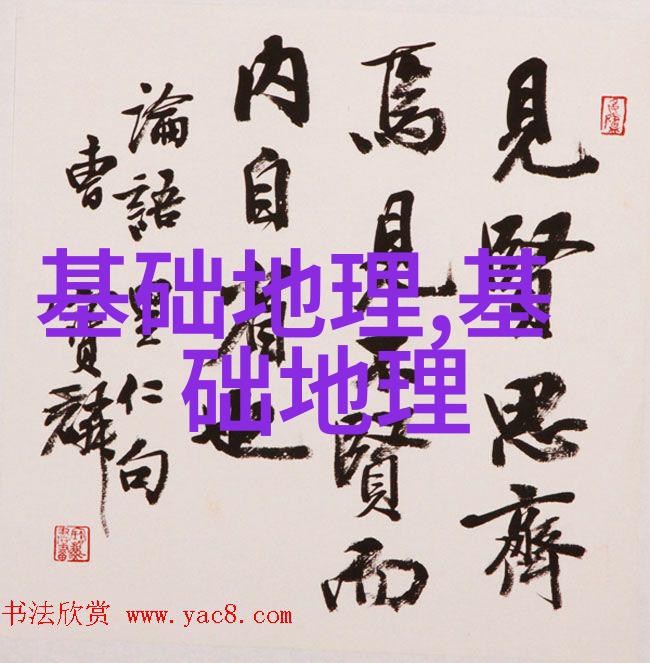 見賢思齊
焉見不賢而
内自省也
論語里仁句
曹寶麟
基础地理,基
础地理
书法欣赏 www.yac8.com